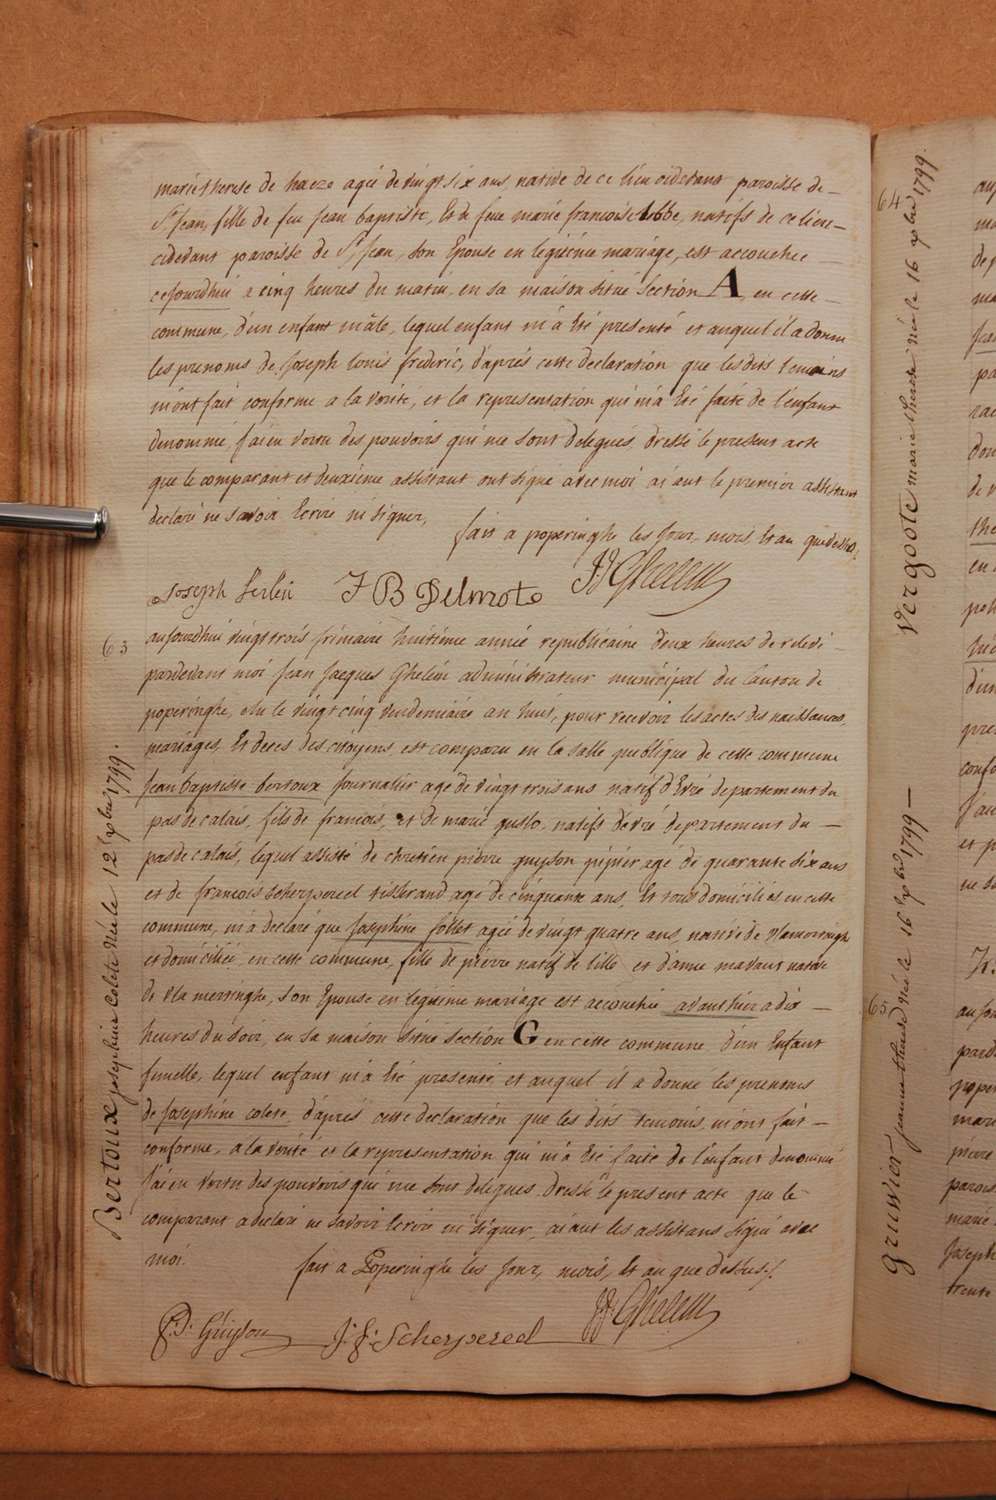 marie therese de haeze agée de vingt six ans, native de ce lieu cidevant paroisse de
St. Jean, fille de feu Jean baptiste, et de feue marie francoise Abbe, natifs de ce lieu
cidevant paroisse de St. Jean, son Epouse en legitime mariage, est accouchée
cejourdhui a cinq heures du matin en sa maison situé section A en cette
commune, d'un enfant mâle, lequel enfant m'a été presenté et auquel il a donné
les prenoms de Joseph louis frederic, d'aprés cette declaration que lesdits temoins
m'ont fait conforme a la vérité, et la representation qui m'a été faite de l'enfant
denommé, J'ai en vertu des pouvoirs qui me sont delegués, dressé le present acte
que le comparant et deuxieme assistant ont signé avec moi aiant le premier assistant
declaré ne savoir Ecrire ni signer,
fait a poperinghe les Jour, mois, et an que dessus.
Joseph J B Delmote JJ Ghelein
63
aujourdhui vingt trois frimaire huitieme année republicaine deux heures de relevée
pardevant moi Jean Jacques Ghelein administrateur municipal du Canton de
poperinghe, elu le vingt cinq vendemiaire an huit, pour recevoir les actes des naissances,
mariages, et deces des citoyens est comparu en la salle publique de cette commune
Jean baptiste bertoux Journalier agé de vingt trois ans natif d' departement du
pas de calais, fils de francois, et de marie natifs departement du
pas de calais, lequel assisté de chretien pierre guyson agé de quarante six ans
et de francois scherpereel tisserand agé de cinquante ans, et tous domiciliés en cette
commune, m'a declaré que Josephine follet agée de vingt quatre ans, native de vlamertinghe
et domiciliée en cette commune, fille de pierre natif de lille et d'anne native
de vlamertinghe, son Epouse en legitime mariage est accouchée avanthier a dix
heures du soir, en sa maison située section G en cette commune d'un Enfant
femelle, lequel enfant m'a été presenté et auquel il a donné les prenoms
de Josephine colete d'aprés cette declaration que les dits temoins m'ont fait
conforme, a la vérité et la representation qui m'a été faite de l'enfant denommé
J'ai en vertu des pouvoirs qui me sont delegues dressé le present acte que le
comparant a declaré ne savoir Ecrire ni signer, aiant les assistans signé avec
moi.
fait a Poperinghe les Jour, mois, et an que dessus.
Guyson J: f: Scherpereel JJ: Ghelein
Bertoux josephine Colete née le 12 xbre 1799.
64
Vergoote marie therese née le 16 xbre 1799.
65
Gruwier jeanne née le 16 xbre 1799